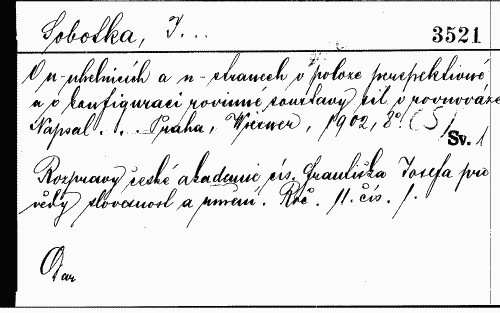 Sobotka, J... 3521
O n-úhelnících a n-stranech v poloze perspektivné
a o konfiguraci rovinné soustavy sil v rovnováze
Napsal... Praha, Wiesner, 1902, 8° (5)
Sv. 1
Rozpravy české akademie cís. Františka Josefa pro
vědy slovesnost a umění. Roč. 11. čís. 1.